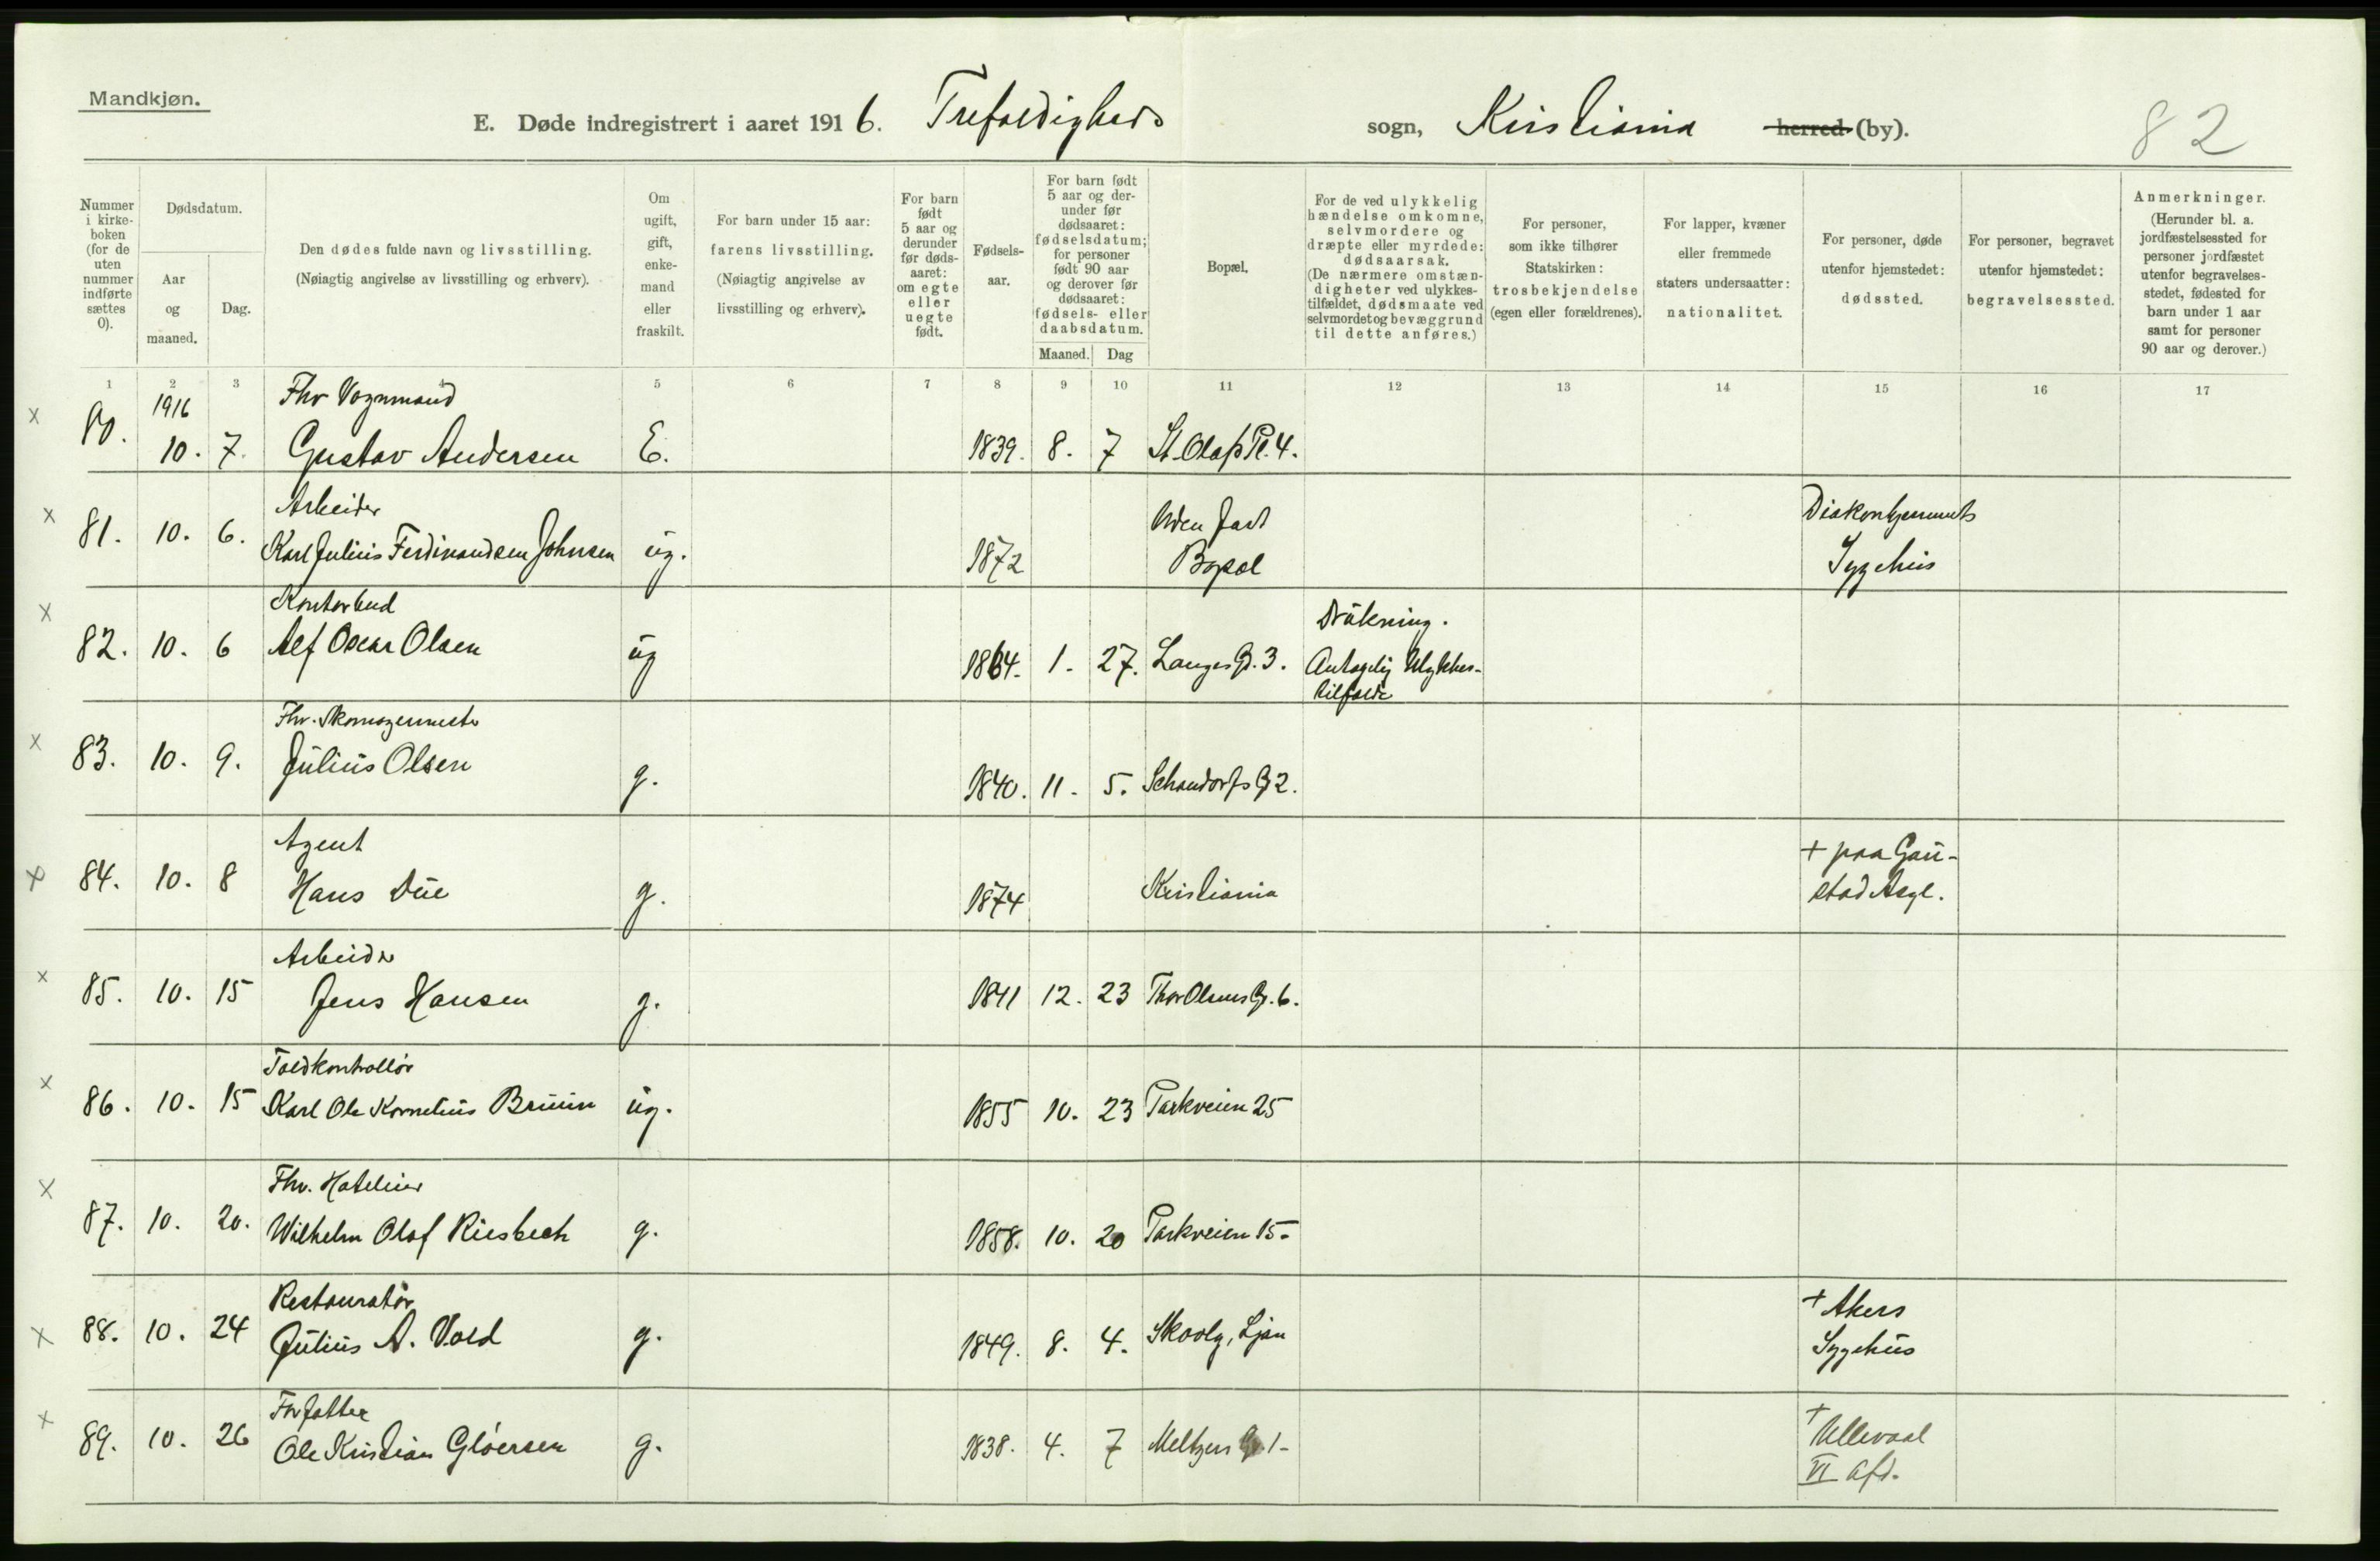 Mandkjøn.
E. Døde indregistrert i aaret 1916. Trefoldigheds sogn, Kristiania herred (by).
82
Nummer i kirke-boken (for de uten nummer indførte sættes 0).
Dødsdatum.
Aar og maaned.
Dag.
Den dødes fulde navn og livsstilling.
(Nøiagtig angivelse av livsstilling og erhverv).
Om ugift, gift, enke-mand eller fraskilt.
For barn under 15 aar: farens livsstilling.
(Nøiagtig angivelse av livsstilling og erhverv).
For barn født 5 aar og derunder før døds-aaret: om egte eller uegte født.
Fødsels-aar.
For barn født 5 aar og der-under før dødsaaret: fødselsdatum; for personer født 90 aar og derover før dødsaaret: fødsels- eller daabsdatum.
Maaned.
Dag
Bopæl.
For de ved ulykkelig hændelse omkomne, selvmordere og dræpte eller myrdede: dødsaarsak.
(De nærmere omstæn-digheter ved ulykkes-tilfældet, dødsmaate ved selvmordet og bevæggrund til dette anføres.)
For personer, som ikke tilhører Statskirken: trosbekjendelse (egen eller forældrenes).
For lapper, kvæner eller fremmede staters undersaatter: nationalitet.
For personer, døde utenfor hjemstedet: dødssted.
For personer, begravet utenfor hjemstedet: begravelsessted.
Anmerkninger.
(Herunder bl. a. jordfæstelsessted for personer jordfæstet utenfor begravelses-stedet, fødested for barn under 1 aar samt for personer 90 aar og derover.)
1 2 3 4 5 6 7 8 9 10 11 12 13 14 15 16 17
x 80. 1916 10. 7. Fhv Vognmand Gustav Andersen E. 1839. 8. 7 St. Olafs Pl. 4.
x 81. 10. 6. Arbeider Karl Julius Ferdinandsen Johnsen ug. 1872 Uden fast Bopæl Diakonhjemmets Sygehus
x 82. 10. 6 Kontorbud Alf Oscar Olsen ug 1864. 1. 27. Langes G. 3. Drukning. Antagelig Ulykkes-tilfælde
x 83. 10. 9. Fhv. Skomagermester Julius Olsen g. 1840. 11. 5. Schandorfs G 2.
x 84. 10. 8 Agent Hans Due g. 1874 Kristiania + paa Gau-stad Asyl.
x 85. 10. 15 Arbeider Jens Hansen g. 1841 12. 23 Thor Olsens G. 6.
x 86. 10. 15 Toldkontrollør Karl Ole Kornelius Bruun ug. 1855 10. 23 Parkveien 25
x 87. 10. 20. Fhv. Hotelier Wilhelm Olaf Riesbech g. 1858. 10. 20 Parkveien 15-
x 88. 10. 24 Restauratør Julius A. Vold g. 1849. 8. 4. Skovly, Ljan + Akers Sygehus
x 89. 10. 26 Forfatter Ole Kristian Gløersen g. 1838. 4. 7 Meltzers G. 1- + Ullevaal VI afd.